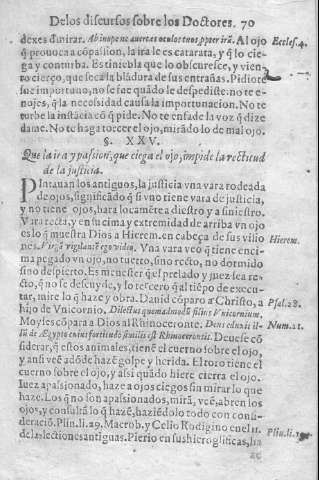 De los discursos sobre los Doctores. 70
dexes d̃ mirar. Ab inope ne auertas oculos tuos ꝓpter irã. Al ojo Eccles. 4.
q̃ prouoca a cõpassion, la ira le es catarata, y q̃ lo cie-
ga y conturba. Es tiniebla que lo obscuresce, y vien-
to cierço, que seca la blãdura de sus entrañas. Pidiote
fue importuno, no se fue quãdo le despediste: no te e-
nojes, q̃ la necessidad causa la importunacion. No te
turbe la instãcia cõ q̃ pide. No te enfade la voz q̃ dize
dame. No te haga torcer el ojo, mirãdo lo de mal ojo.
§. XXV.
Que la ira y passion, que ciega el ojo, impide la rectitud
de la justicia.
PIntauan los antiguos, la justicia vna vara rodeada
de ojos, significãdo q̃ si vno tiene vara de justicia,
y no tiene ojos, hara locamẽte a diestro y a siniestro.
Vara recta, y en su cima y extremidad de arriba vn ojo
es lo q̃ muestra Dios a Hierem. en cabeça de sus vilio Hierem.
nes. Virgã vigilantẽ ego video. Vna vara veo q̃ tiene enci-
ma pegado vn ojo, no tuerto, sino recto, no dormido
sino despierto. Es menester q̃ el prelado y juez sea re-
cto, q̃ no se descuyde, y lo tercero q̃ al tiẽpo de execu-
tar, mire lo q̃ haze y obra. Dauid cõparo a Christo, a Psal. 28.
hijo de Vnicornio. Dilectus quemadmodũ filius Vnicornium.
Moyses cõpara a Dios al Rhinoceronte. Deus eduxit il- Num. 21.
lũ de Ægypto cuius fortitudo similis est Rhinocerontis. Deuese cõ
siderar, q̃ estos animales, tienẽ el cuerno sobre el ojo,
y ansi veẽ adõde hazẽ golpe y herida. El toro tiene el
cuerno sobre el ojo, y asi quãdo hiere cierra el ojo.
Iuez apassionado, haze a ojos ciegos sin mirar lo que
haze. Los q̃ no son apassionados, mirã, veẽ, abren los
ojos, y consultã lo q̃ hazẽ, haziẽdolo todo con consi-
deraciõ. Plin. li. 29. Macrob. y Celio Rodigino en el 11. Plin. li. 29.
de las lectiones antiguas. Pierio en sus hieroglificas, ha
ze